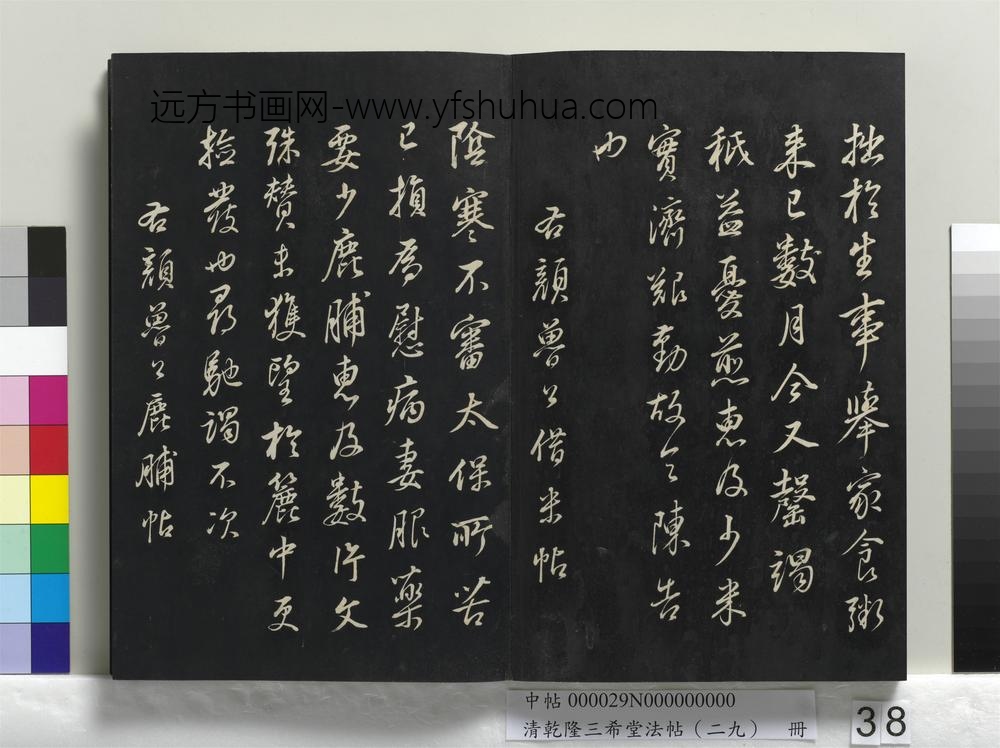 远方书画网-www.yfshuhua.com
拙於生事舉家食粥
来已數月今又罄竭
秖益憂煎惠及少米
實濟艱勤故令陳告
也
右顔魯公借米帖
陰寒不審太保所苦
已損為慰病妻服藥
要少鹿脯惠及數片文
殊賛未獲望於簏中更
撿發也尋馳謁不次
右顔魯公鹿脯帖
中帖000029N000000000
清乾隆三希堂法帖（二九） 冊
38